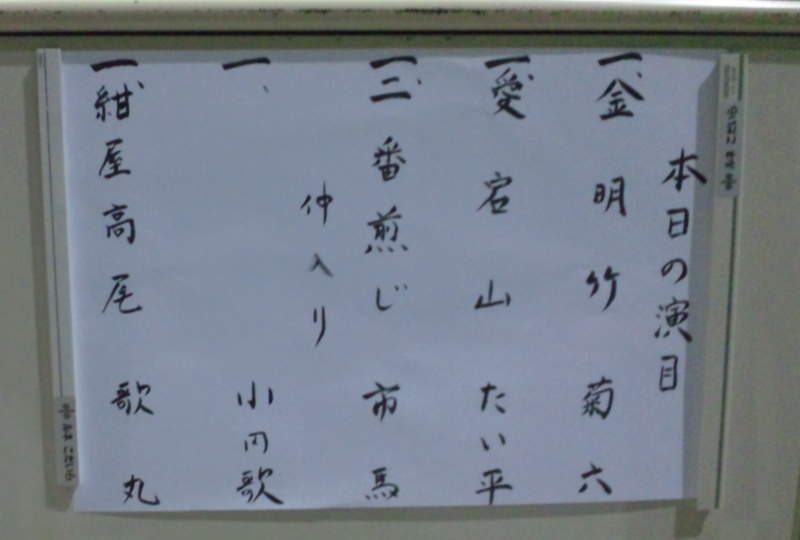 本日の演目
一、金明竹 菊六
一、愛宕山 たい平
一、二番煎じ 市馬
仲入り
一、 小円歌
一、紺屋高尾 歌丸